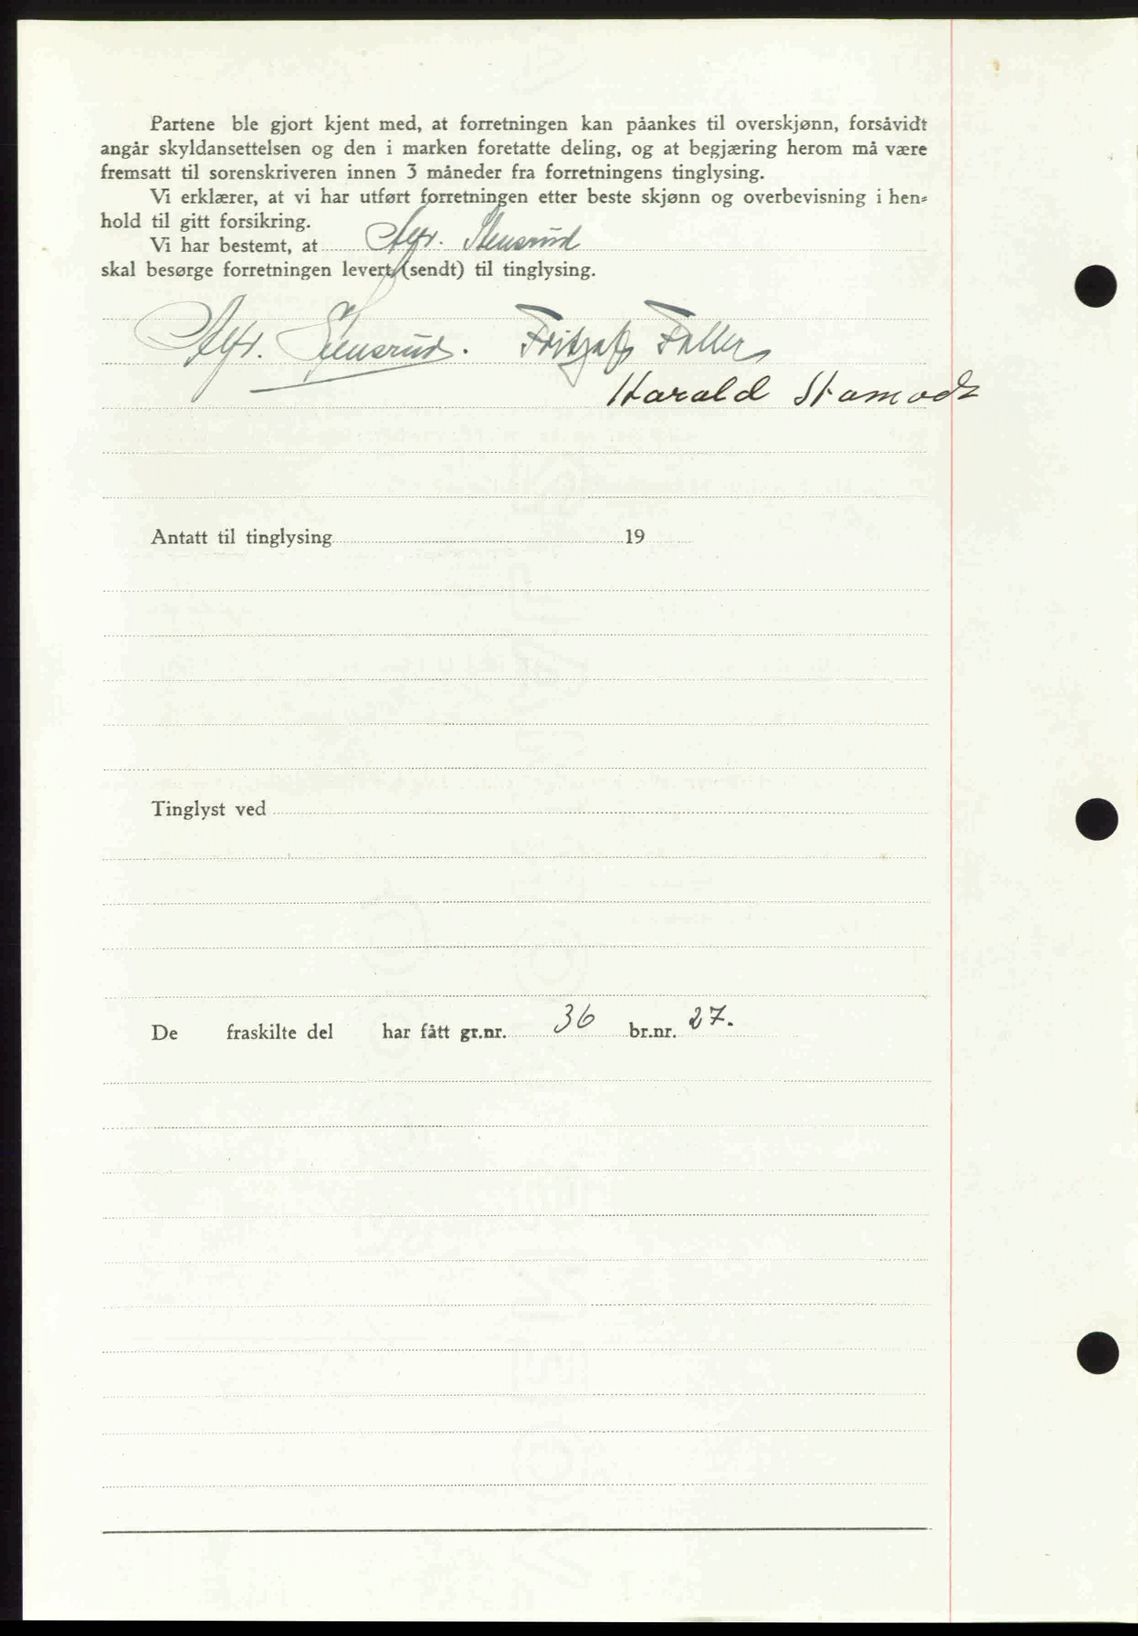 Partene ble gjort kjent med, at forretningen kan påankes til overskjønn, forsåvidt
angår skyldansettelsen og den i marken foretatte deling, og at begjæring herom må være
fremsatt til sorenskriveren innen 3 måneder fra forretningens tinglysing.
Vi erklærer, at vi har utført forretningen etter beste skjønn og overbevisning i hen=
hold til gitt forsikring.
Vi har bestemt, at Alfr. Stensrud
skal besørge forretningen levert (sendt) til tinglysing.
Alfr. Stensrud. Fritjof Faller
Harald
Antatt til tinglysing 19
Tinglyst ved
De fraskilte del har fått gr.nr. 36 br.nr. 27.